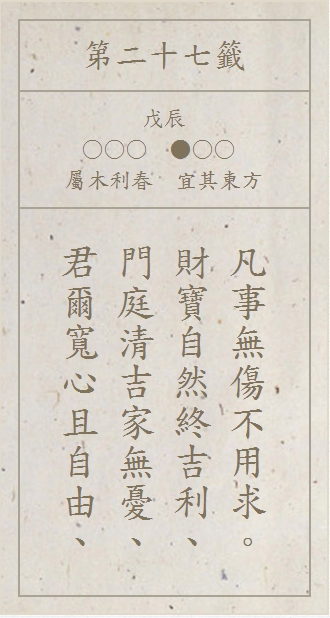 第二十七籤
戊辰
○○○ ●○○
屬木利春 宜其東方
君爾寬心且自由、
門庭清吉家無憂、
財寶自然終吉利、
凡事無傷不用求。